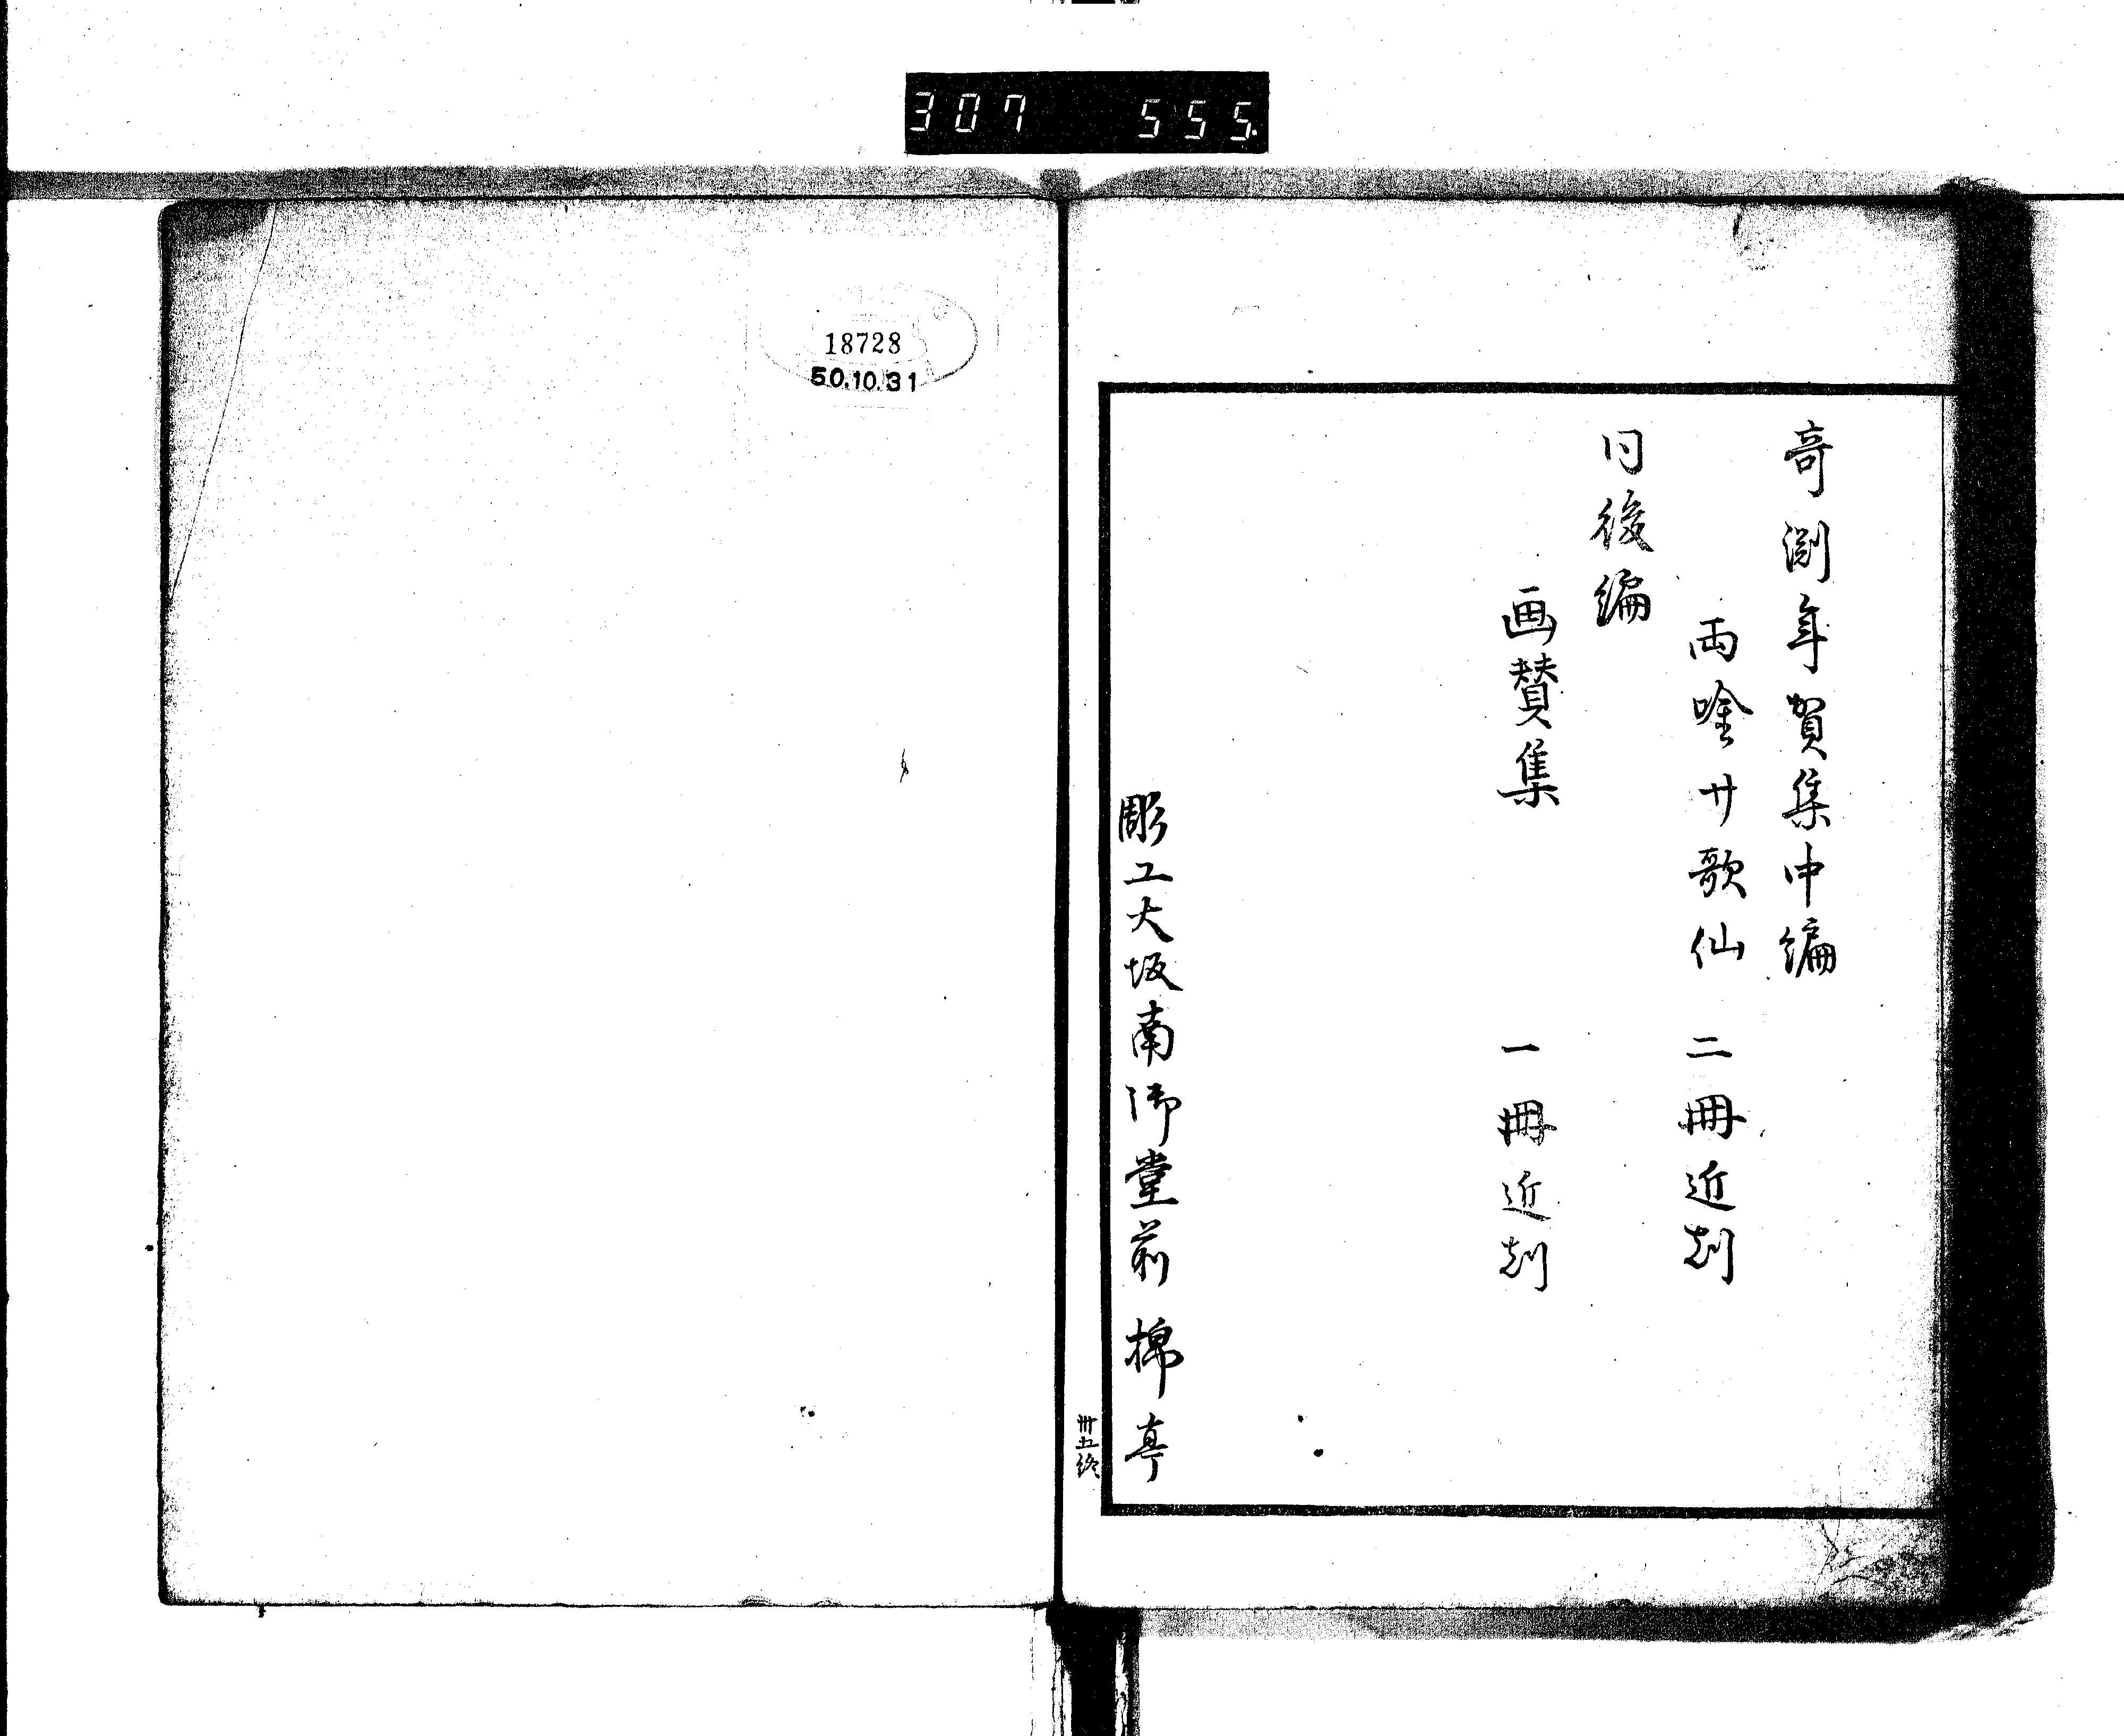 307 555
奇渕年賀集中編
両唫廾歌仙 二冊近刻
同後編
画賛集 一冊近刻
彫工大坂南御堂前 棉亭
卅五終
18728
50.10.31